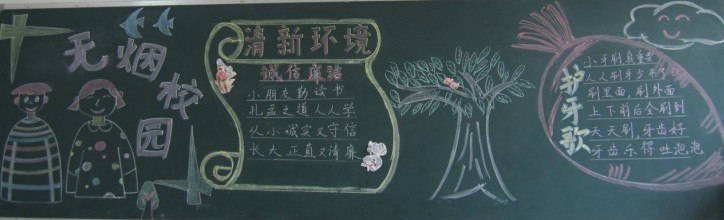 无烟校园
清新环境
诚信廉洁
小朋友勤读书
孔孟之道人人学
从小诚实又守信
长大正直又清廉
护牙歌
小牙刷真重要
人人刷牙少不了
刷里面，刷外面
上下前后全刷到
天天刷，牙齿好
牙齿乐得吐泡泡